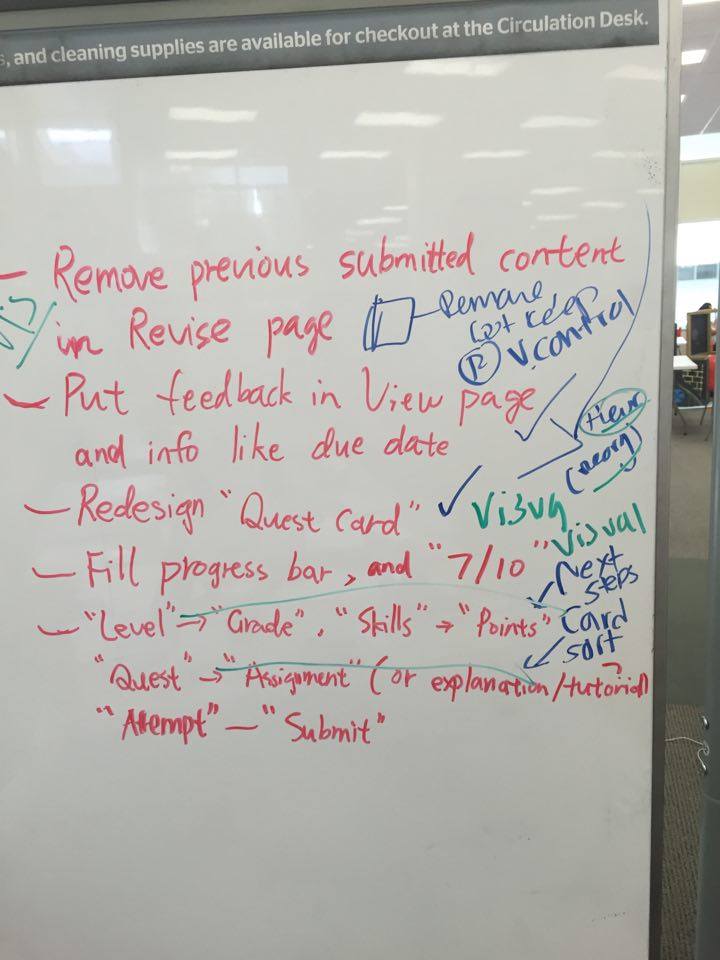 , and cleaning supplies are available for checkout at the Circulation Desk.
- Remove previous submitted content
in Revise page
Remove
keep
V.control
- Put feedback in View page
and info like due date
- Redesign "Quest Card"
Visual
- Fill progress bar, and "7/10"
Next
steps
- "Level" → "Grade", "Skills" → "Points"
Card
sort
"Quest" → "Assignment" (or explanation/tutorial)
?
"Attempt" — "Submit"